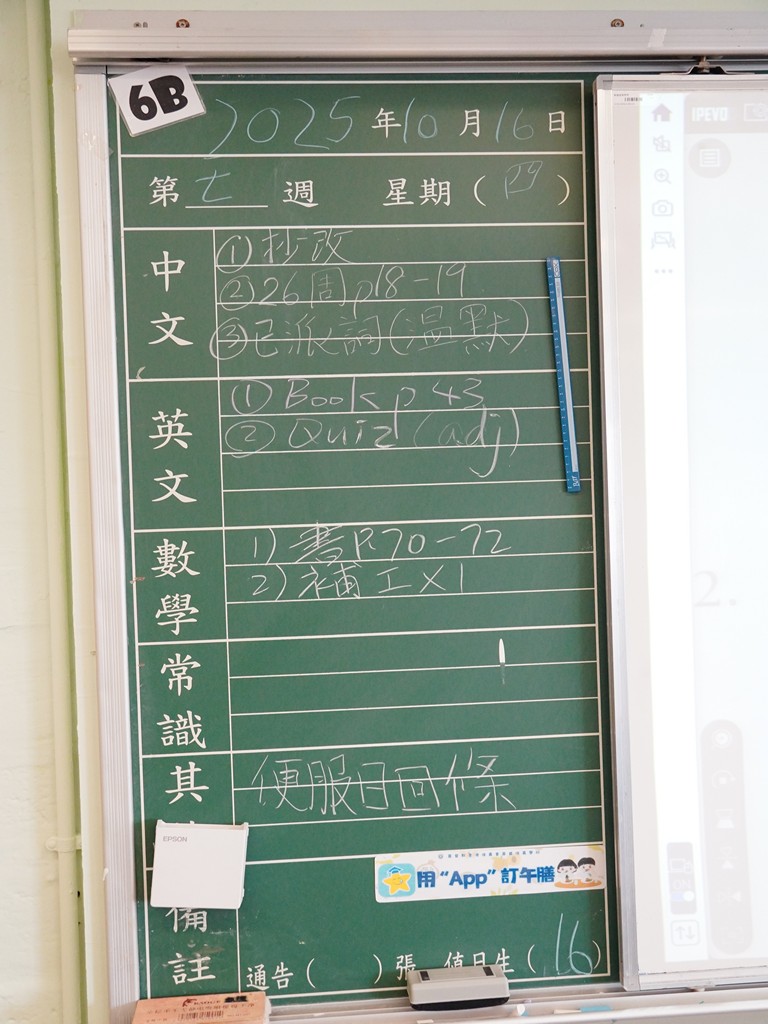 6B
2025年10月16日
第七週 星期(四)
中文
①抄改
②26周p18-19
③已派詞(溫默)
英文
① Book p 43
② Quiz (adj)
數學
1) 書P.70-72
2) 補工×1
常識
其
便服日回條
EPSON
用“App”訂午膳
備註
通告( )張 值日生(16)
IPEVO
2.